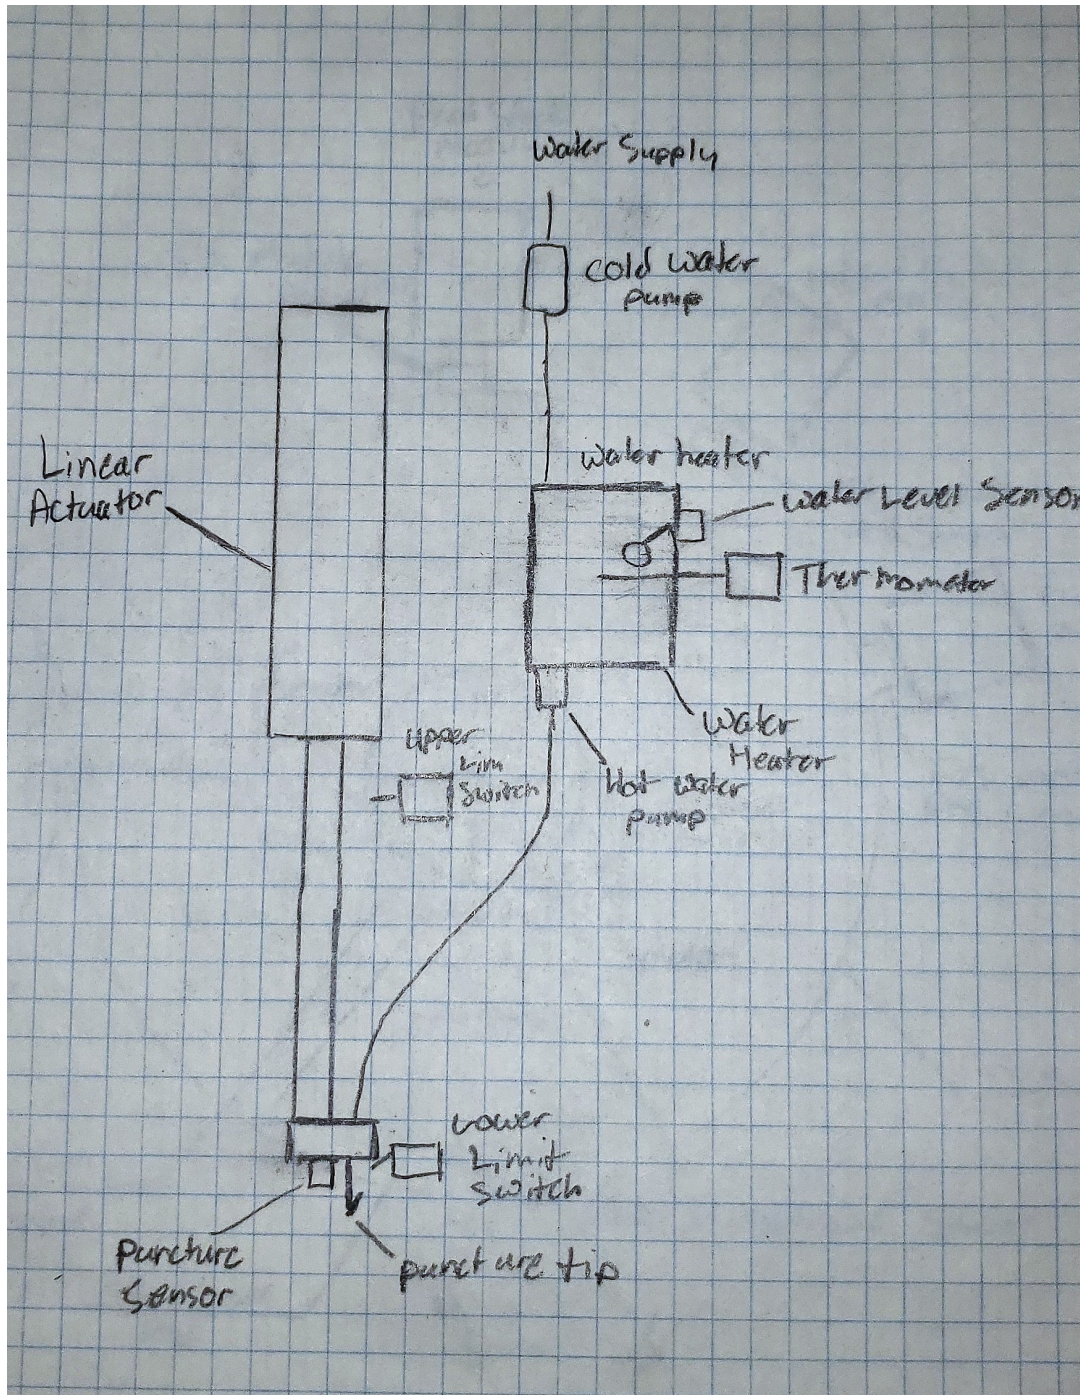 Water Supply
Cold Water
pump
Linear
Actuator
Water heater
Water Level Sensor
Thermometer
Water
Heater
Upper
Lim
Switch
Hot water
pump
Lower
Limit
Switch
Puncture
Sensor
puncture tip